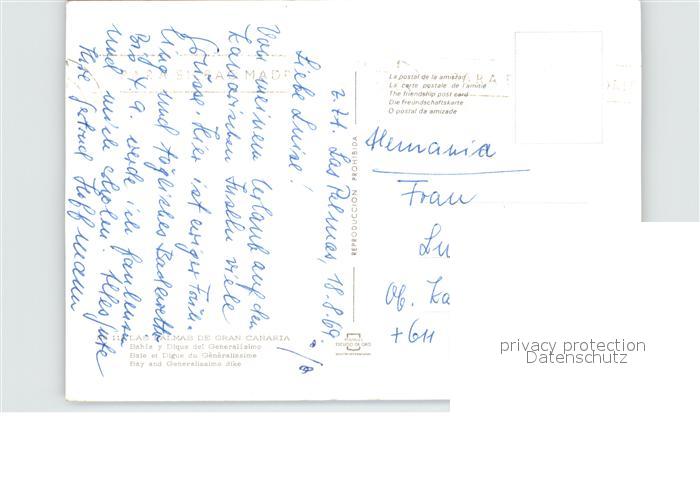 z.Zt. Las Palmas, 18.8.69
Liebe Luise!
Von meinem Urlaub auf den
Kanarischen Inseln viele
Grüsse. Hier ist ewiger Früh-
ling und tägliches Badewetter
Bis 4.9. werde ich faulenzen
und mich erholen. Alles Gute
Ihre Hoffmann
11 LAS PALMAS DE GRAN CANARIA
Bahía y Dique del Generalísimo
Baie et Digue du Généralissime
Bay and Generalissimo dike
REPRODUCCION PROHIBIDA
ESCUDO DE ORO
La postal de la amistad
La carte postale de l'amitié
The friendship post card
Die freundschaftskarte
O postal da amizade
Alemania
Frau
Lu
Ob. Ka
privacy protection
Datenschutz